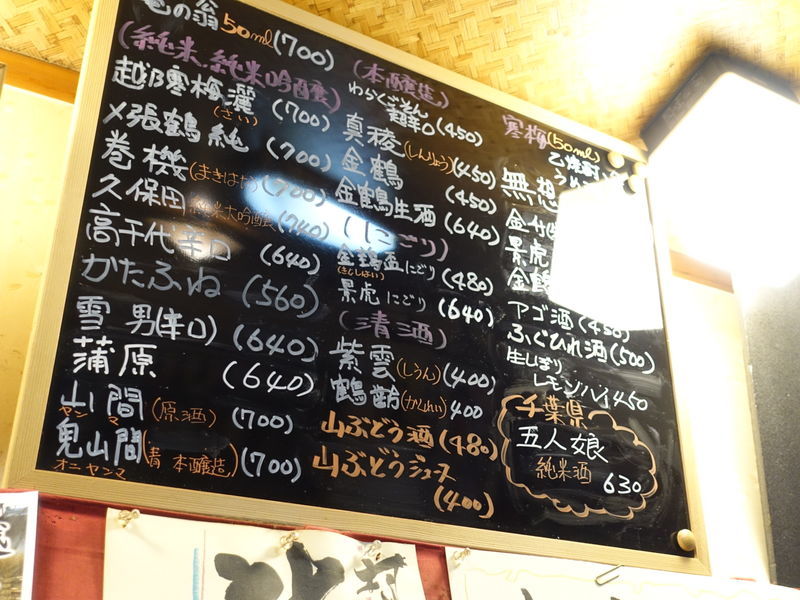 の翁50ml(700)
(純米.純米吟醸)
越乃寒梅灑(さい)(700)
〆張鶴純(700)
巻機(まきはた)(700)
久保田純米大吟醸(740)
高千代辛口(640)
かたふね(560)
雪男(辛口)(640)
蒲原(640)
山間ヤンマ(原酒)(700)
鬼山間オニヤンマ(青 本醸造)(700)
(本醸造)
わらぐちそん
超辛口(450)
真稜(しんりょう)(450)
金鶴(450)
金鶴生酒(640)
(にごり)
金鶴盃にごり(480)
景虎にごり(640)
(清酒)
紫雲(しうん)(400)
鶴齢(かくれい)400
山ぶどう酒(480)
山ぶどうジュース
(400)
寒梅(50ml)
乙焼酎
無想
景虎
金鶴
アゴ酒(450)
ふぐひれ酒(500)
生しぼり
レモンハイ450
千葉県
五人娘
純米酒
630